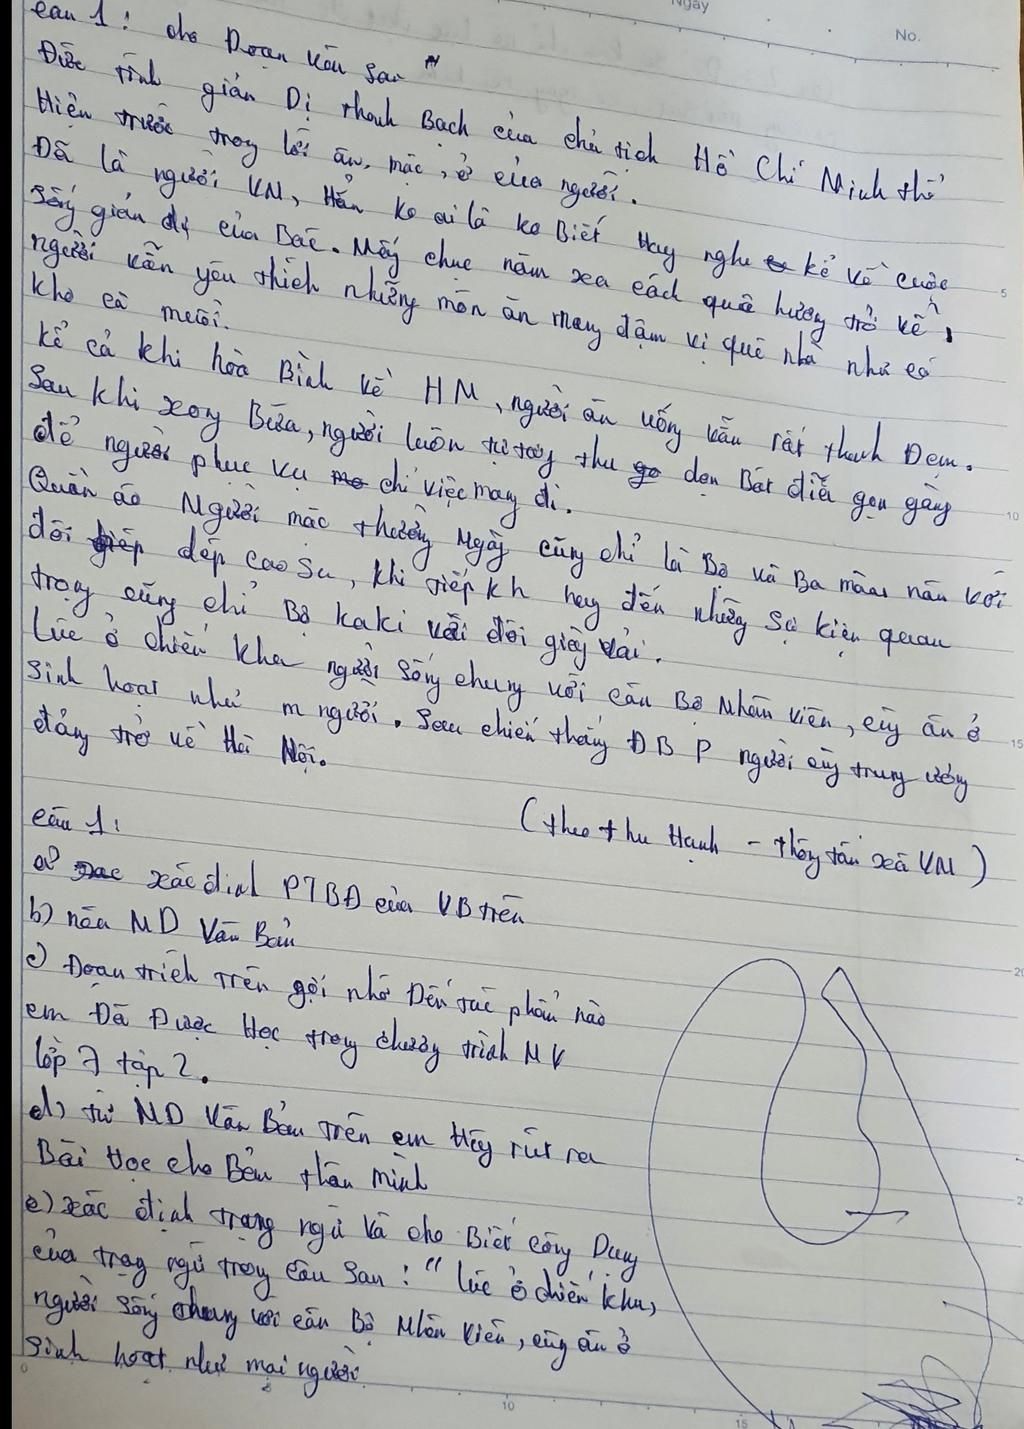 Ngày
No.
câu 1: cho Đoạn văn sau "
Đức tính giản Dị thanh Bạch của chủ tịch Hồ Chí Minh thể
Hiện trước trong lối ăn, mặc, ở của người.
Đã là người VN, Hẳn ko ai là ko Biết Hay nghe kể về cuộc
sống giản dị của Bác. Mấy chục năm xa cách quê hương trở về,
người vẫn yêu thích những món ăn mang đậm vị quê nhà như cá
kho cà muối.
kể cả khi hòa Bình về HN, người ăn uống vẫn rất thanh Đạm.
Sau khi xong Bữa, người luôn tự tay thu dọn Bát đĩa gọn gàng
để người phục vụ chỉ việc mang đi.
Quần áo Người mặc thường Ngày cũng chỉ là Bộ và Ba màu nâu với
đôi dép cao su, khi tiếp kh hay đến những sự kiện quan
trọng cũng chỉ Bộ kaki với đôi giày vải.
Lúc ở chiến khu người sống chung với cán Bộ Nhân viên, cùg ăn ở
sinh hoạt như m người. Sau chiến thắng ĐBP người cùg trung ương
đảng trở về Hà Nội.
(theo thu Hạnh - thông tấn xã VN)
câu 1:
a) xác định PTBĐ của VB trên
b) nêu ND Văn Bản
c) Đoạn trích trên gợi nhớ Đến tác phẩm nào
em Đã Được Học trong chương trình NV
lớp 7 tập 2.
d) từ ND Văn Bản trên em Hãy rút ra
Bài Học cho Bản thân mình
e) xác định trạng ngữ và cho Biết công Dụng
của trạng ngữ trong câu sau: "Lúc ở chiến khu,
người sống chung với cán Bộ Nhân viên, cùg ăn ở
sinh hoạt như mọi người